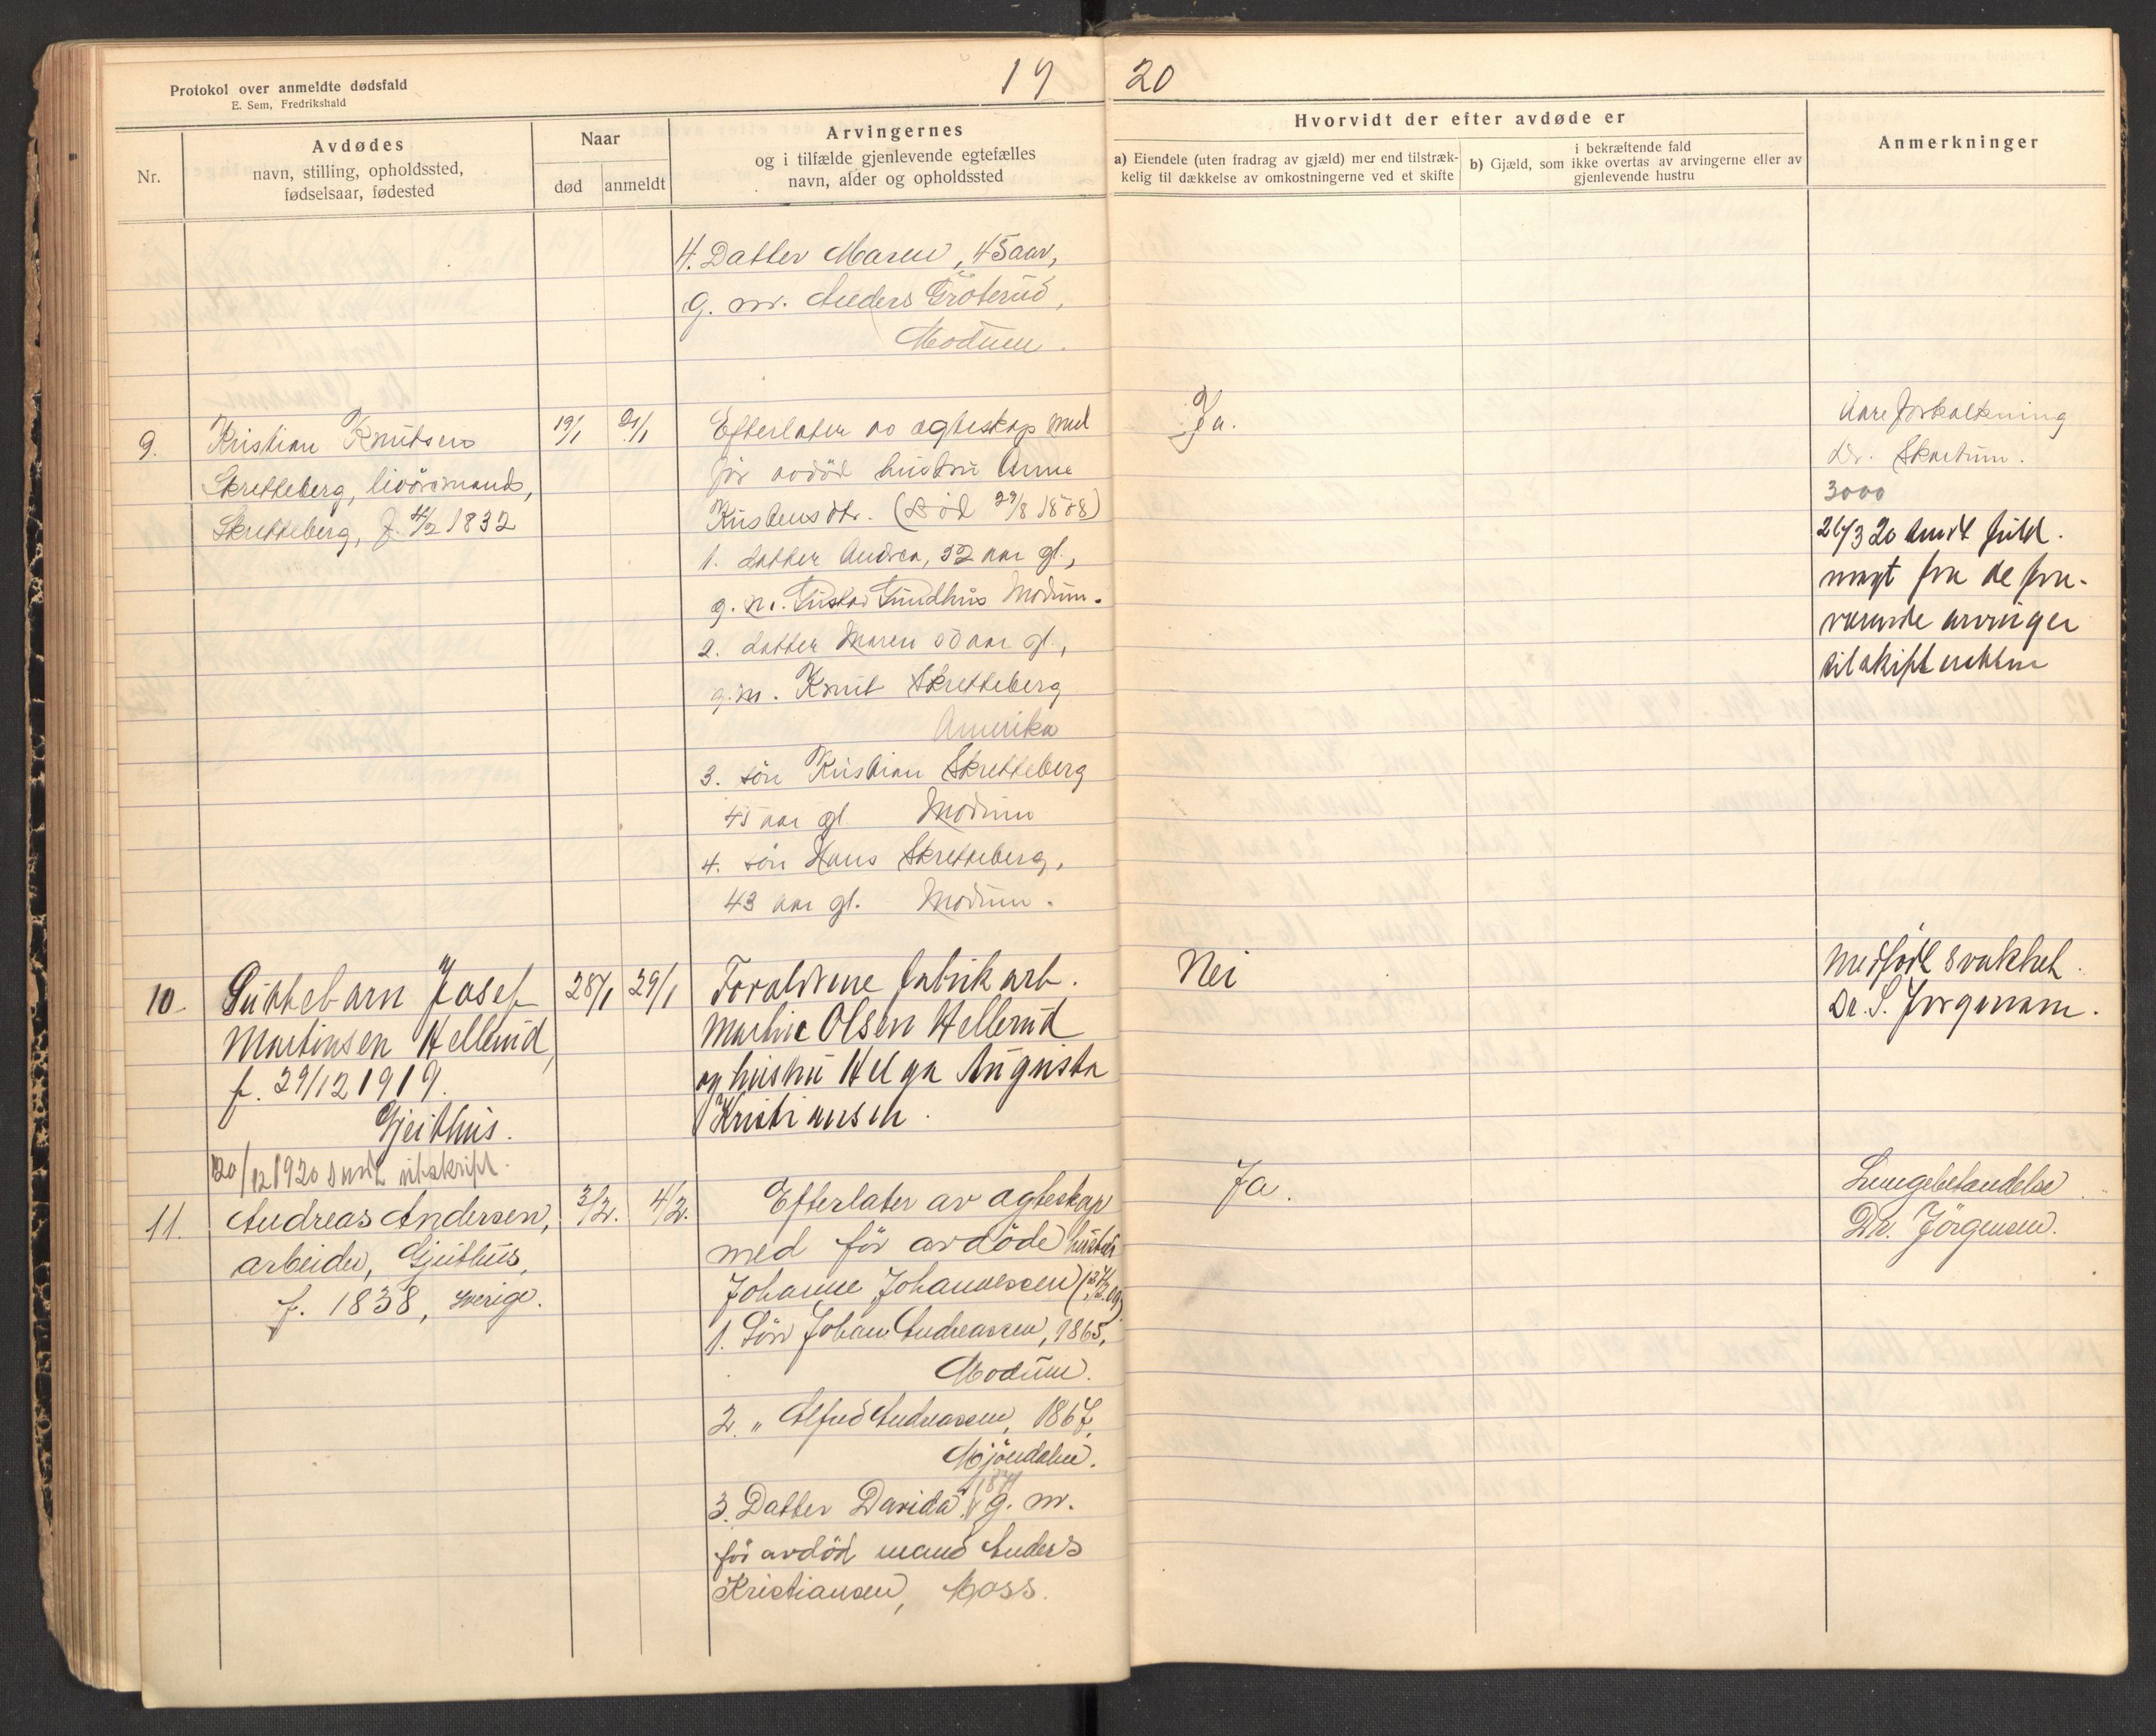 Protokol over anmeldte dødsfald
E. Sem, Fredrikshald
19
20
Nr.
Avdødes
navn, stilling, opholdssted,
fødselsaar, fødested
Naar
død
anmeldt
Arvingernes
og i tilfælde gjenlevende egtefælles
navn, alder og opholdssted
Hvorvidt der efter avdøde er
a) Eiendele (uten fradrag av gjæld) mer end tilstræk-
kelig til dækkelse av omkostningerne ved et skifte
i bekræftende fald
b) Gjæld, som ikke overtas av arvingerne eller av
gjenlevende hustru
Anmerkninger
4. Datter Maren, 45 aar,
g. m. Anders Groterud,
Modum.
9.
Kristian Knutsen
Skretteberg, livörsmand,
Skretteberg, f. 4/2 1832
19/1
21/1
Efterlater av ægteskap med
før avdöd hustru Anne
Kristensdtr. (Död 29/8 1808)
1. datter Andrea, 52 aar gl.,
g. m. Gustav Sundhus Modum.
2. datter Maren 50 aar gl.,
g. m. Knut Skretteberg
Amerika
3. sön Kristian Skretteberg
45 aar gl. Modum
4. sön Hans Skretteberg,
43 aar gl. Modum.
Ja.
Aareforkalkning
Dr. Skartum.
3000
26/3 20 sendt fuld.
magt fra de fra-
værende arvinger
til skifteretten
10.
Pikkebarn Josef
Martinsen Hellerud,
f. 29/12 1919.
Gjeithus.
20/12 1920 sendt utskrift.
28/1
29/1
Forældrene fabrikarb.
Martin Olsen Hellerud
og hustru Helga Augusta
Kristiansen.
Nei
Medfödt svakhet.
Dr. S. Jørgensen.
11.
Andreas Andersen,
arbeider, Gjeithus,
f. 1838, Sverige.
3/2.
4/2.
Efterlater av ægteskap
med för avdöde hustru
Johanne Johannessen
1. Sön Johan Andreassen, 1865,
Modum.
2. " Alfred Andreassen, 1867,
Mjöndalen.
3. Datter Davida, 1871 g. m.
för avdöd mand Anders
Kristiansen, Moss.
Ja.
Lungebetændelse
Dr. Jörgensen.